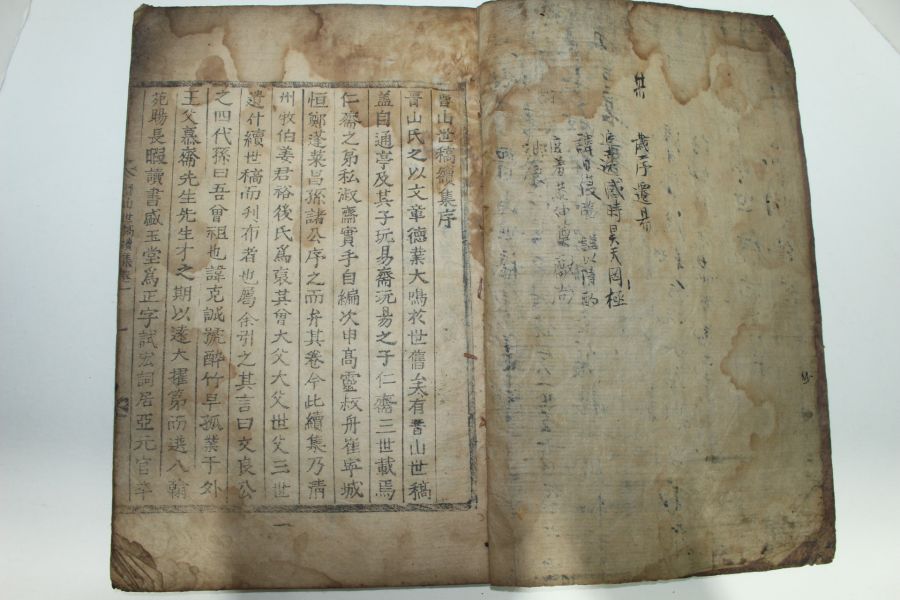 癸 歲序遷易
追遠感時昊天罔極
諱日復臨
晉山世稿續集序
晉山氏之以文章德業大鳴於世舊矣有晉山世稿
盖自通亭及其子玩易齋玩易之子仁齋三世載焉
仁齋之弟私淑齋實手自編次申高靈叔舟崔寧城
恒鄭蓬萊昌孫諸公序之而弁其卷今此續集乃淸
州牧伯姜君裕後氏爲裒其曾大父大父世父三世
遺什續世稿而刊布者也屬余引之其言曰文良公
之四代孫曰吾曾祖也諱克誠號醉竹早孤業于外
王父慕齋先生先生才之期以遠大擢第而選入翰
苑賜長暇讀書盛玉堂爲正字試宏詞居亞元官卒
一